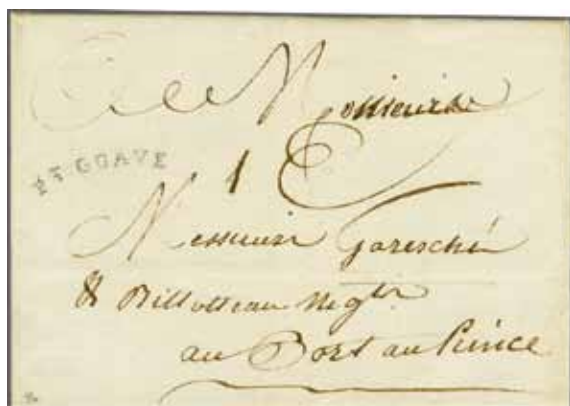 Messieurs
PT GOAVE
1
Messieurs Garesché
& Billotteau Negts
au Port au Prince